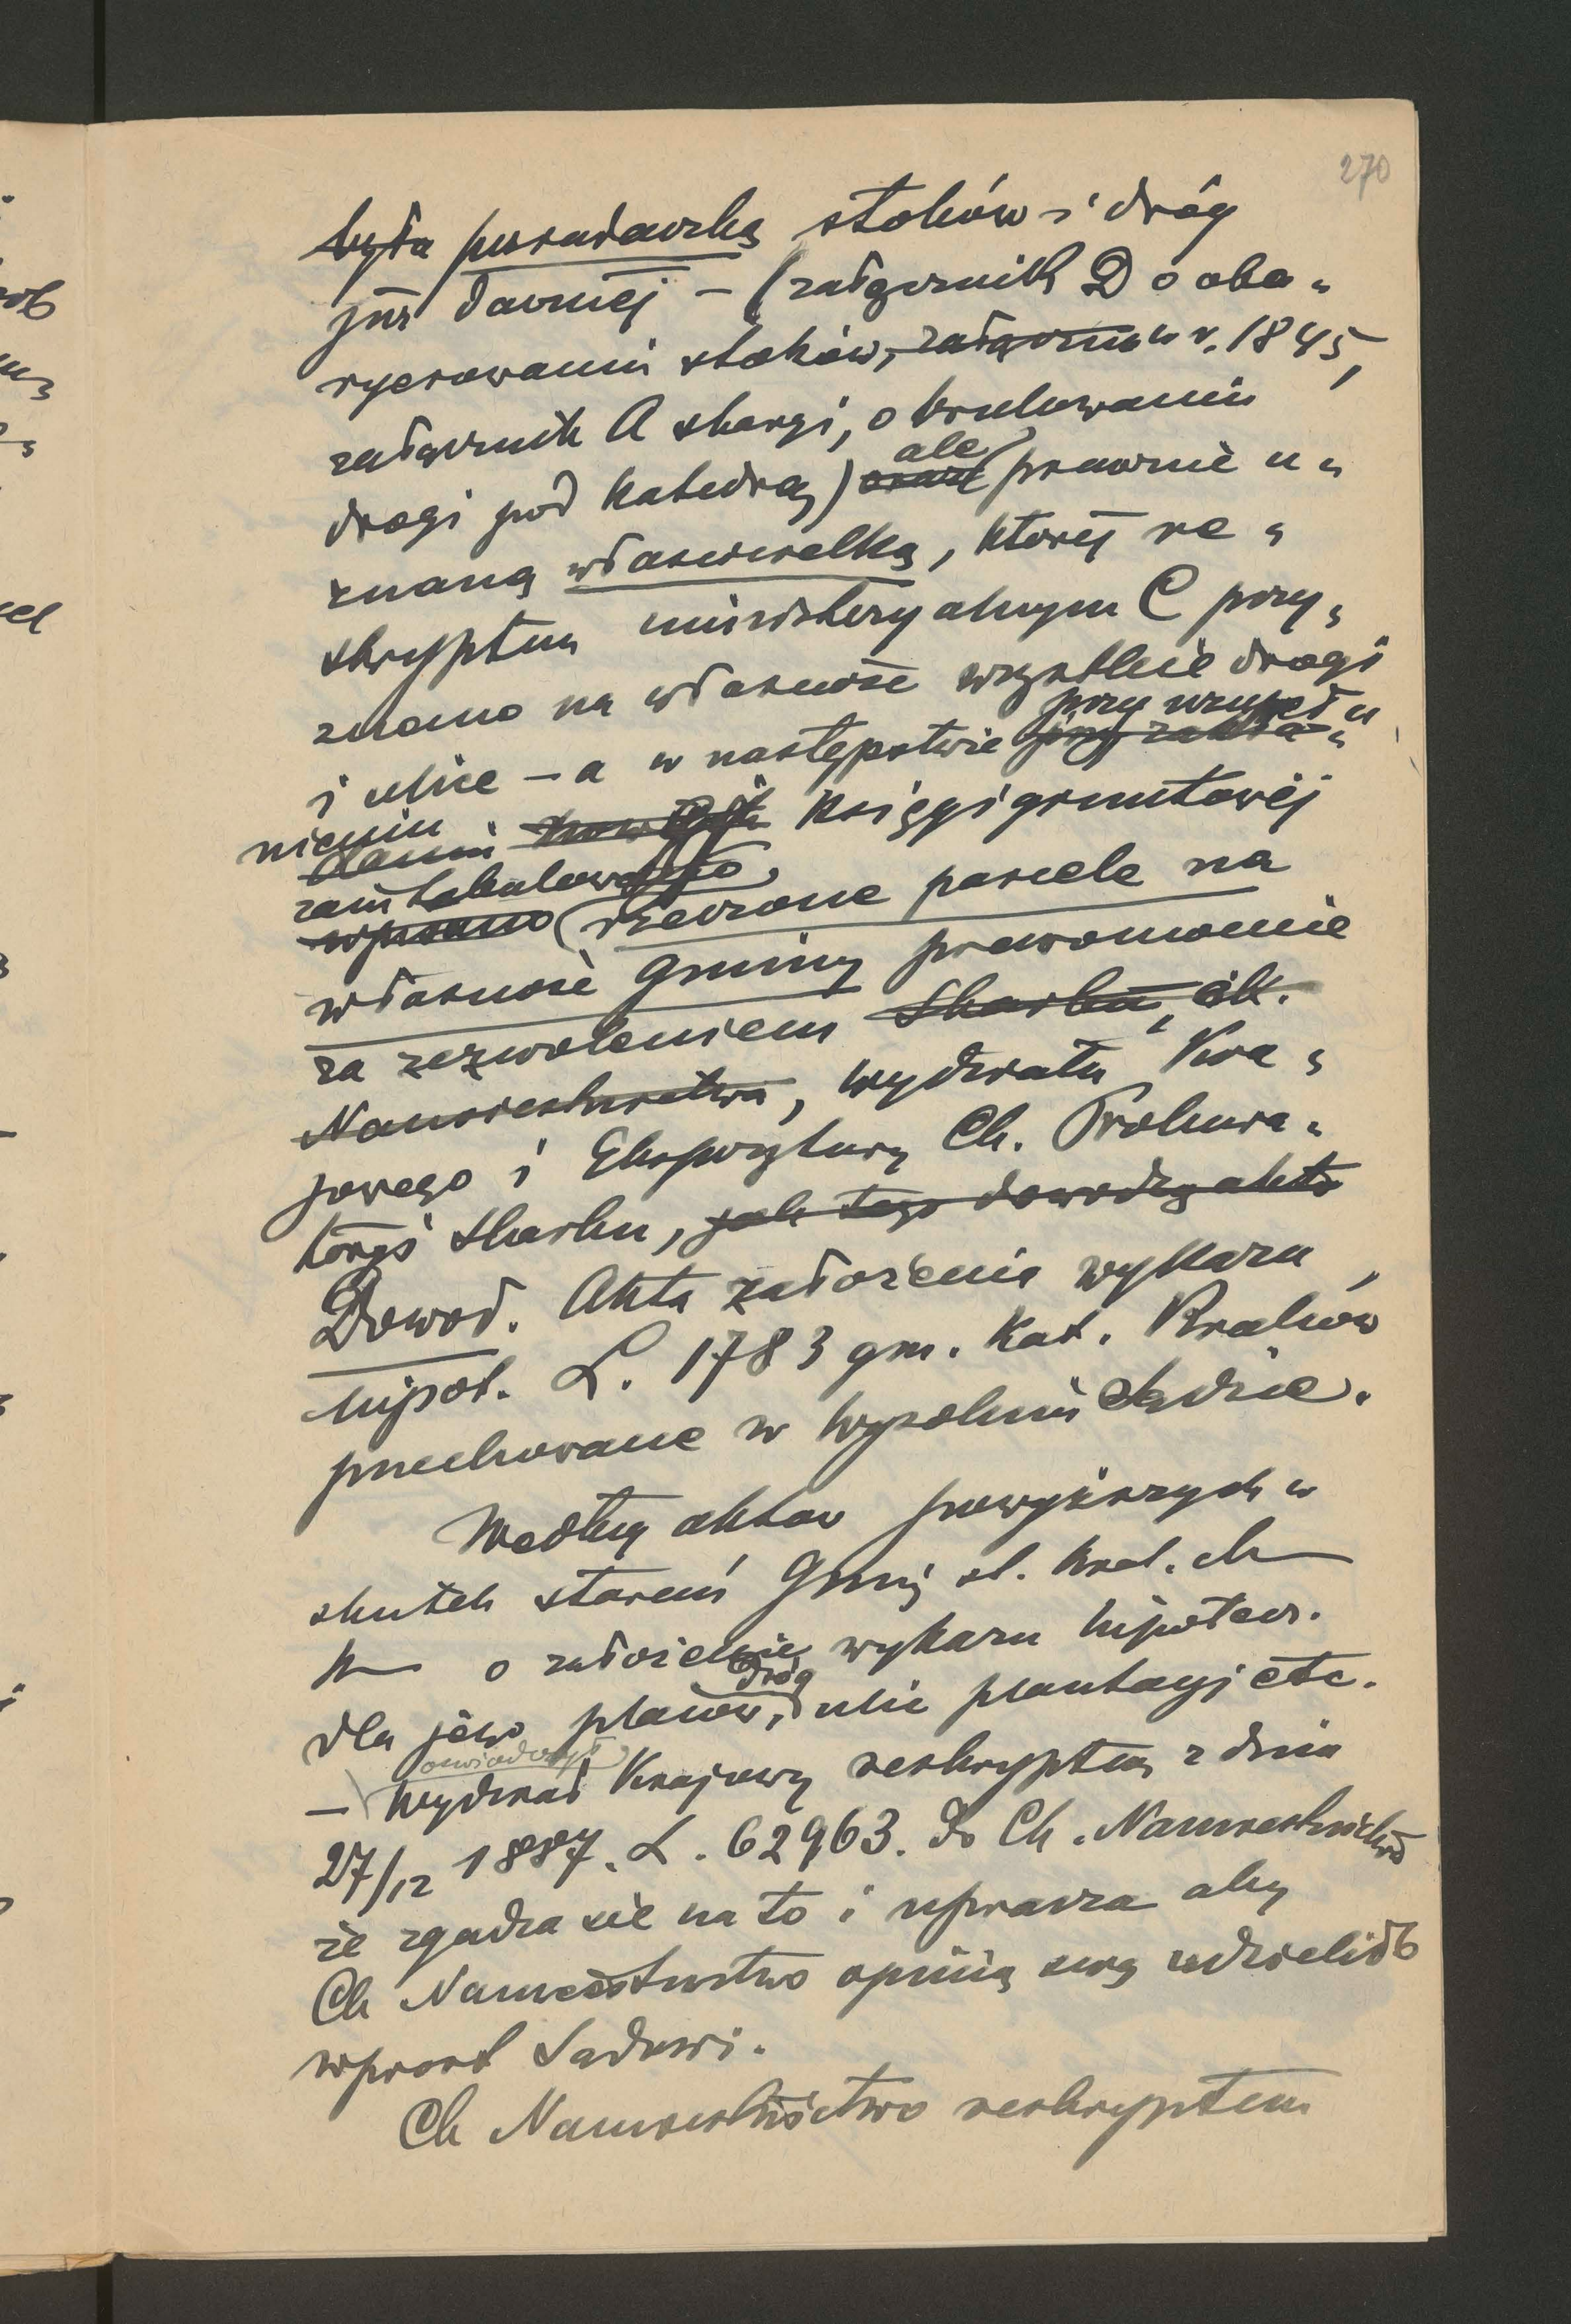 270
była posiadaczką stoków i dróg
już dawniej – (załącznik D o oba„
rycrowaniu stoków, załącznik w r. 1845,
załącznik A skargi, o brukowaniu
drogi pod Katedrą) oraz ale prawnie u„
znaną właścicielką, której re„
skryptem ministeryalnym C przy„
znano na własność wszystkie drogi
i ulice – a w następstwie przy zakła„ przy uzupeł„
nieniu daniu nowych Księgi gruntowej
zaintabulowano wpisano rzeczone parcele na
własność Gminy prawomocnie
za zezwoleniem Skarbu, ck.
Namiestnictwa, Wydziału Kra„
jowego i Ekspozytury Ck. Prokura„
toryi Skarbu, jak tego dowodzą akta
Dowod. Akta założenia wykazu
hipot. L. 1783 gm. Kat. Kraków
przechowane w tutejszym Sądzie.
Według aktów powyższych w
skutek starań Gminy st. Krak.
o założenie wykazu hipotecz.
dla jéj placów, dróg ulic plantacyj etc.
– oświadczył Wydział Krajowy reskryptem z dnia
27/12 1887. L. 62963. do Ck. Namiestnictwa
że zgadza się na to i uprasza aby
Ck Namiestnictwo opinię swą udzieliło
wprost Sądowi.
Ck Namiestnictwo reskryptem